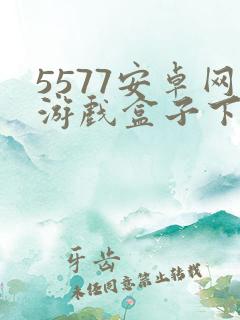 5577安卓网
游戏盒子下
牙齿
未经同意禁止转载